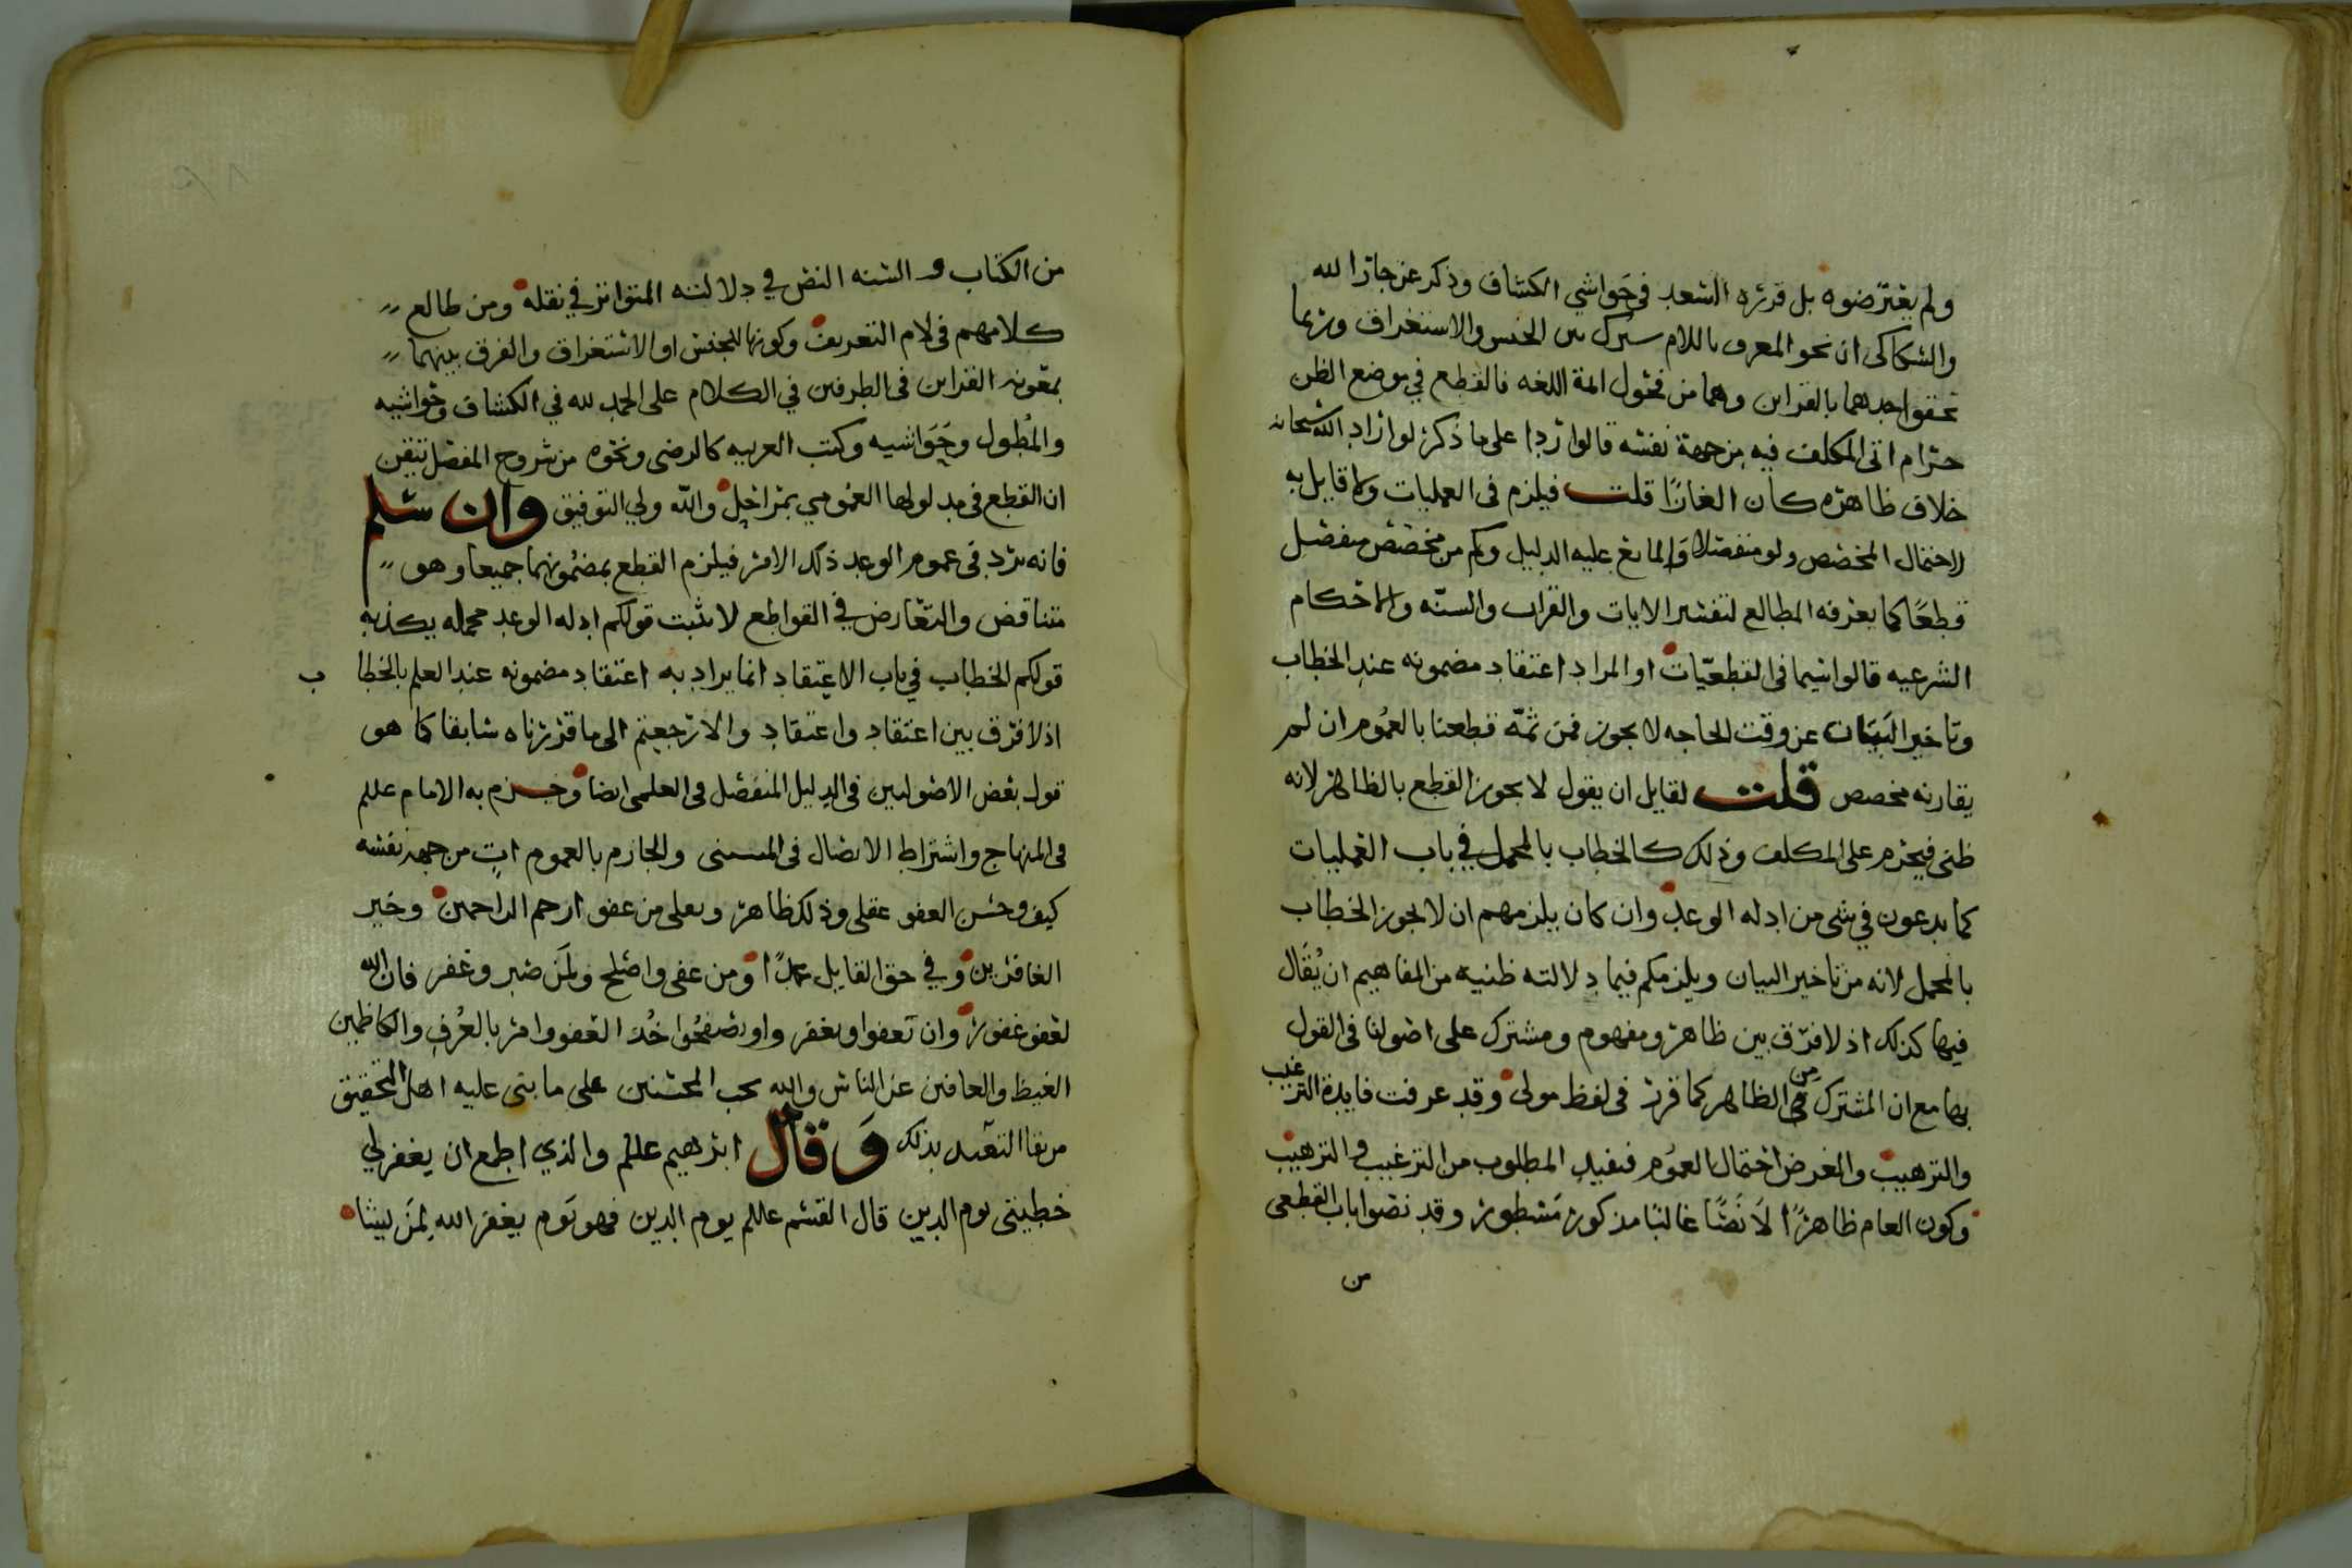 ولم يعترضوه بل قرره السعد في حواشي الكشاف وذكر عن جار الله
والسكاكي ان نحو المعرف باللام مشترك بين الجنس والاستغراق وربما
تحقق احدهما بالقراين وهما من فحول ايمة اللغه فالقطع في موضع الظن
حرام اتى المكلف فيه من جهة نفسه قالوا ردا على ما ذكر لو اراد الله سبحانه
خلاف ظاهره كان الغازا قلت فيلزم في العمليات ولا قايل به
لاحتمال المخصص ولو منفصلا والمانع عليه الدليل وكم من مخصص منفصل
قطعا كما يعرفه المطالع لتفسير الايات والقران والسنه والاحكام
الشرعيه قالوا سيما في القطعيات او المراد اعتقاد مضمونه عند الخطاب
وتاخير البيان عن وقت الحاجه لا يجوز فمن ثمه قطعنا بالعموم ان لم
يقارنه مخصص قلت لقايل ان يقول لا يجوز القطع بالظاهر لانه
ظني فيحرم على المكلف وذلك كالخطاب بالمجمل في باب العمليات
كما يدعون في شي من ادله الوعد وان كان يلزمهم ان لا يجوز الخطاب
بالمجمل لانه من تاخير البيان ويلزمكم فيما دلالته ظنيه من المفاهيم ان يقال
فيها كذلك اذ لا فرق بين ظاهر ومفهوم ومشترك على اصولنا في القول
بها مع ان المشترك من الظاهر كما قرر في لفظ مولى وقد عرفت فايدة الترغيب
والترهيب والغرض احتمال العموم فيفيد المطلوب من الترغيب والترهيب
وكون العام ظاهرا لا نصا غالبا مذكور مسطور وقد نصوا باب القطعي
من
من الكتاب والسنه النص في دلالته المتواتر في نقله ومن طالع
كلامهم في لام التعريف وكونها للجنس او الاستغراق والفرق بينهما
بمعونه القراين في الطرفين في الكلام على الحمد لله في الكشاف وحواشيه
والمطول وحواشيه وكتب العربيه كالرضى ونحوه من شروح المفصل تيقن
ان القطع في مدلولها العمومي بمراحل والله ولي التوفيق وان سلم
فانه يرد في عموم الوعد ذلك الامر فيلزم القطع بمضمونهما جميعا وهو
متناقض والتعارض في القواطع لا يثبت قولكم ادله الوعد مجمله يكذبه
قولكم الخطاب في باب الاعتقاد انما يراد به اعتقاد مضمونه عند العلم بالخطاب
اذ لا فرق بين اعتقاد واعتقاد والا رجعتم الى ما قررناه سابقا كما هو
قول بعض الاصوليين في الدليل المنفصل في العلمي ايضا وجزم به الامام عللم
في المنهاج واشتراط الاتصال في المستثنى والجازم بالعموم ات من جهه نفسه
كيف وحسن العفو عقلي وذلك ظاهر ونعلي من عفو ارحم الراحمين وخير
الغافرين وفي حق القايل عمدا ومن عفى واصلح ولمن صبر وغفر فان الله
لعفو غفور وان تعفوا وبغفر واو تصفحوا خذ العفو وامر بالعرف والكاظمين
الغيظ والعافين عن الناس والله يحب المحسنين على ما بنى عليه اهل التحقيق
من بقا التعبد بذلك وقال ابرهيم عللم والذي اطمع ان يغفر لي
خطيئتي يوم الدين قال القسم عللم يوم الدين فهو يوم يغفر الله لمن يشا